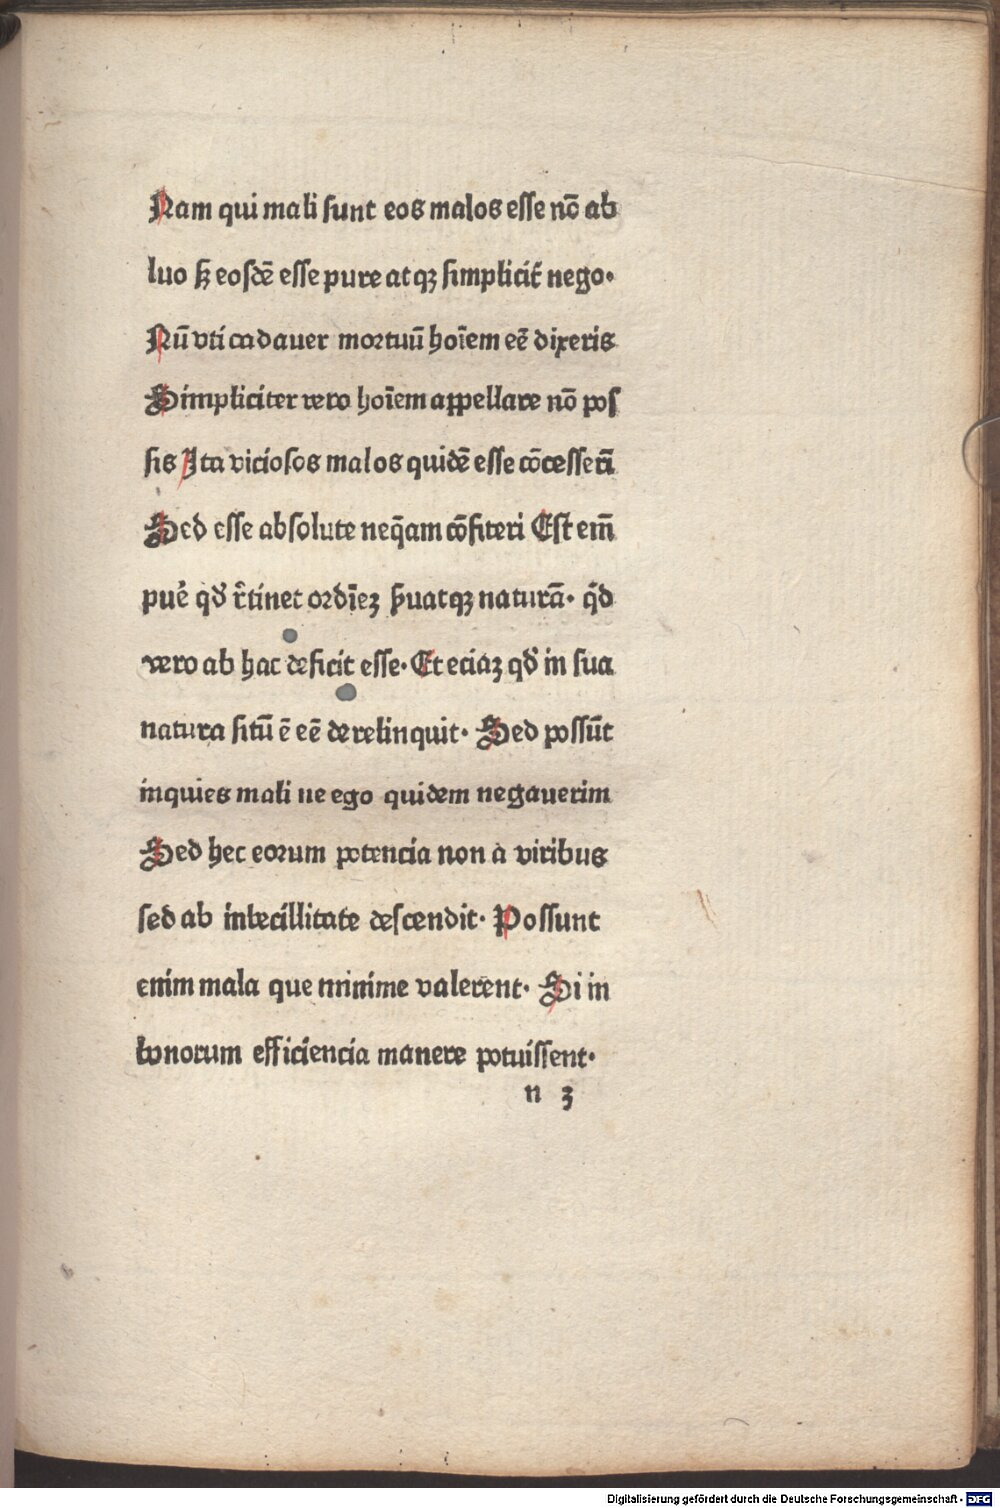 Nam qui mali sunt eos malos esse nō ab
luo sꝫ eosdē esse pure atqꝫ simplicit̄ nego·
Nū vti cadauer mortuū hoīem eē dixeris
Simpliciter vero hoīem appellare nō pos
sis Ita viciosos malos quidē esse cōcesseri̅
Sed esse absolute neq̄am cōfiteri Est em̄
qd̓ r̄tinet ordīeꝫ p̄uatqꝫ naturā· q̄d
vero ab hac deficit esse· Et eciaꝫ qd̓ in sua
natura sitū ē eē derelinquit· Sed possūt
inquies mali ne ego quidem negauerim
Sed hec eorum potencia non a viribus
sed ab inbecillitate descendit· Possunt
enim mala que minime valerent· Si in
bonorum efficiencia manere potuissent·
n 3
Digitalisierung gefördert durch die Deutsche Forschungsgemeinschaft - DFG